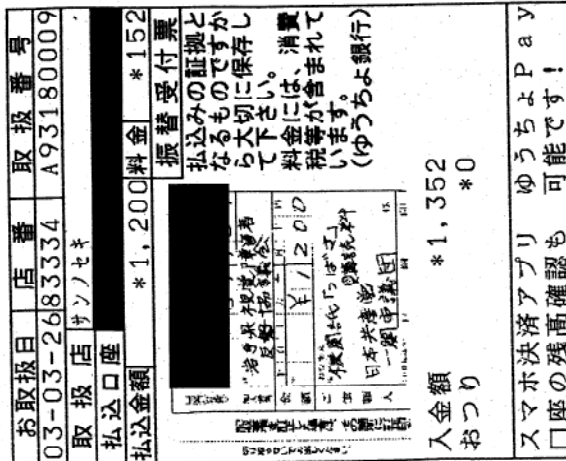 お取扱日 店番 取扱番号
03-03-26 83334 A93180009
取扱店 サンノセキ
払込口座
払込金額 *1,200 料金 *152
振替受付票
払込みの証拠と
なるものですか
ら大切に保存し
て下さい。
料金には、消費
税等が含まれて
います。
(ゆうちょ銀行)
岩手県視覚障害者
¥1200
購読料
日本共産党
一関市議団
入金額 *1,352
おつり *0
スマホ決済アプリ ゆうちょPay
口座の残高確認も 可能です!